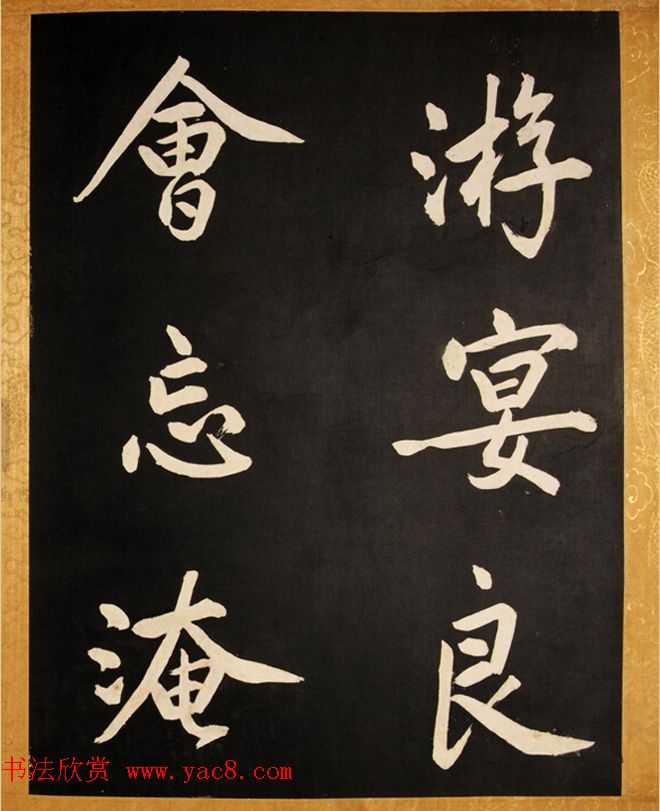 游宴良
會忘淹
书法欣赏 www.yac8.com